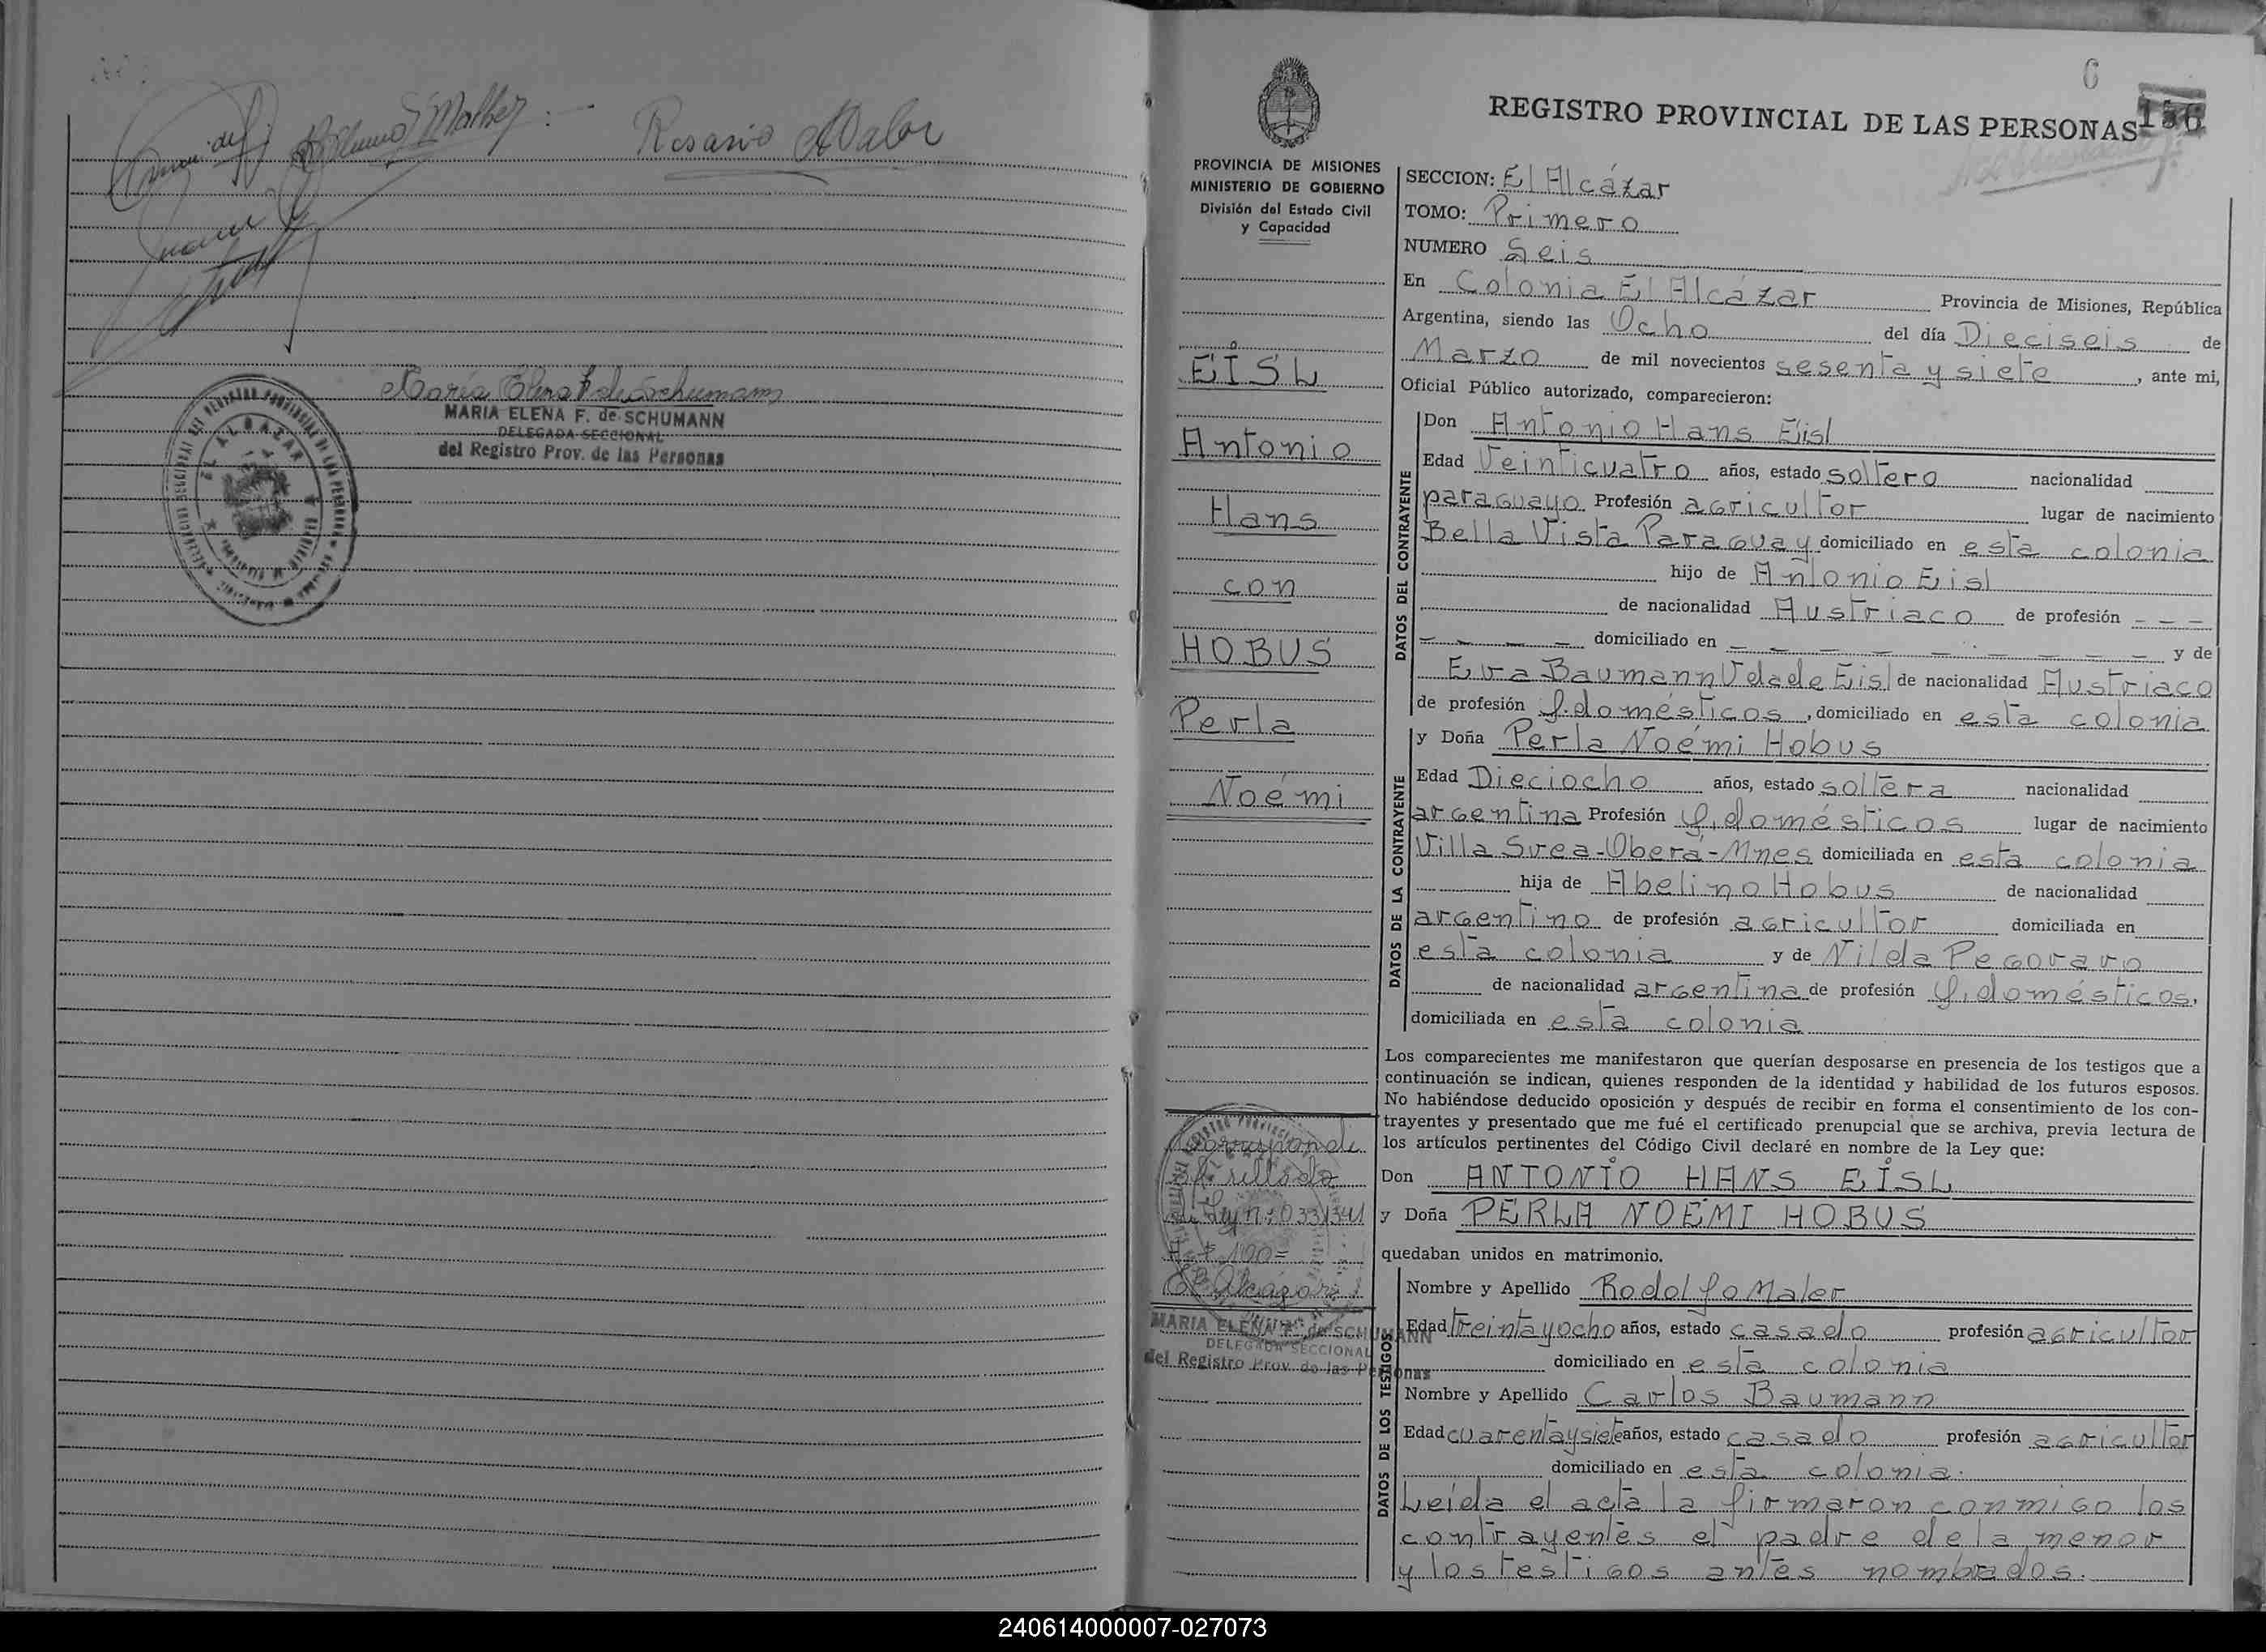 Rosario
MARIA ELENA F. de SCHUMANN
DELEGADA SECCIONAL
del Registro Prov. de las Personas
EL ALCAZAR
6
REGISTRO PROVINCIAL DE LAS PERSONAS 156
PROVINCIA DE MISIONES
MINISTERIO DE GOBIERNO
División del Estado Civil
y Capacidad
EISL
Antonio
Hans
con
HOBUS
Perla
Noémi
El Alcázar
MARIA ELENA F. de SCHUMANN
DELEGADA SECCIONAL
del Registro Prov. de las Personas
SECCION: El Alcázar
TOMO: Primero
NUMERO Seis
En Colonia El Alcázar Provincia de Misiones, República
Argentina, siendo las Ocho del día Dieciseis de
Marzo de mil novecientos sesenta y siete, ante mi,
Oficial Público autorizado, comparecieron:
DATOS DEL CONTRAYENTE
Don Antonio Hans Eisl
Edad Veinticuatro años, estado soltero nacionalidad
paraguayo Profesión agricultor lugar de nacimiento
Bella Vista Paraguay domiciliado en esta colonia
hijo de Antonio Eisl
de nacionalidad Austriaco de profesión - - -
- - - - domiciliado en - - - - - - - - - y de
Eva Baumann Vda de Eisl de nacionalidad Austriaco
de profesión q. domésticos, domiciliado en esta colonia
DATOS DE LA CONTRAYENTE
y Doña Perla Noémi Hobus
Edad Dieciocho años, estado soltera nacionalidad
argentina Profesión q. domésticos lugar de nacimiento
Villa Svea-Oberá-Mnes domiciliada en esta colonia
hija de Abelino Hobus de nacionalidad
argentino de profesión agricultor domiciliada en
esta colonia y de Nilda Pegoraro
de nacionalidad argentina de profesión q. domésticos,
domiciliada en esta colonia
Los comparecientes me manifestaron que querían desposarse en presencia de los testigos que a
continuación se indican, quienes responden de la identidad y habilidad de los futuros esposos.
No habiéndose deducido oposición y después de recibir en forma el consentimiento de los con-
trayentes y presentado que me fué el certificado prenupcial que se archiva, previa lectura de
los artículos pertinentes del Código Civil declaré en nombre de la Ley que:
Don ANTONIO HANS EISL
y Doña PERLA NOÉMI HOBUS
quedaban unidos en matrimonio.
DATOS DE LOS TESTIGOS
Nombre y Apellido Rodolfo Maler
Edad treinta y ocho años, estado casado profesión agricultor
domiciliado en esta colonia
Nombre y Apellido Carlos Baumann
Edad cuarenta y siete años, estado casado profesión agricultor
domiciliado en esta colonia.
Leída el acta la firmaron conmigo los
contrayentes el padre de la menor
y los testigos antes nombrados.
240614000007-027073